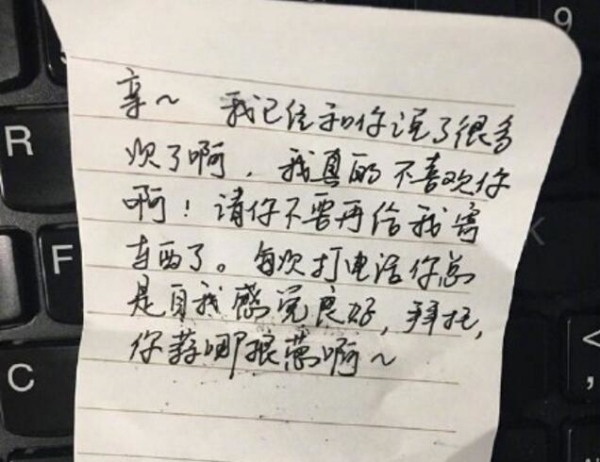 亲~ 我已经和你说了很多
次了啊，我真的不喜欢你
啊！请你不要再给我寄
东西了。每次打电话你总
是自我感觉良好，拜托，
你蒜哪根葱啊~
R
F
C
9
K
<
,